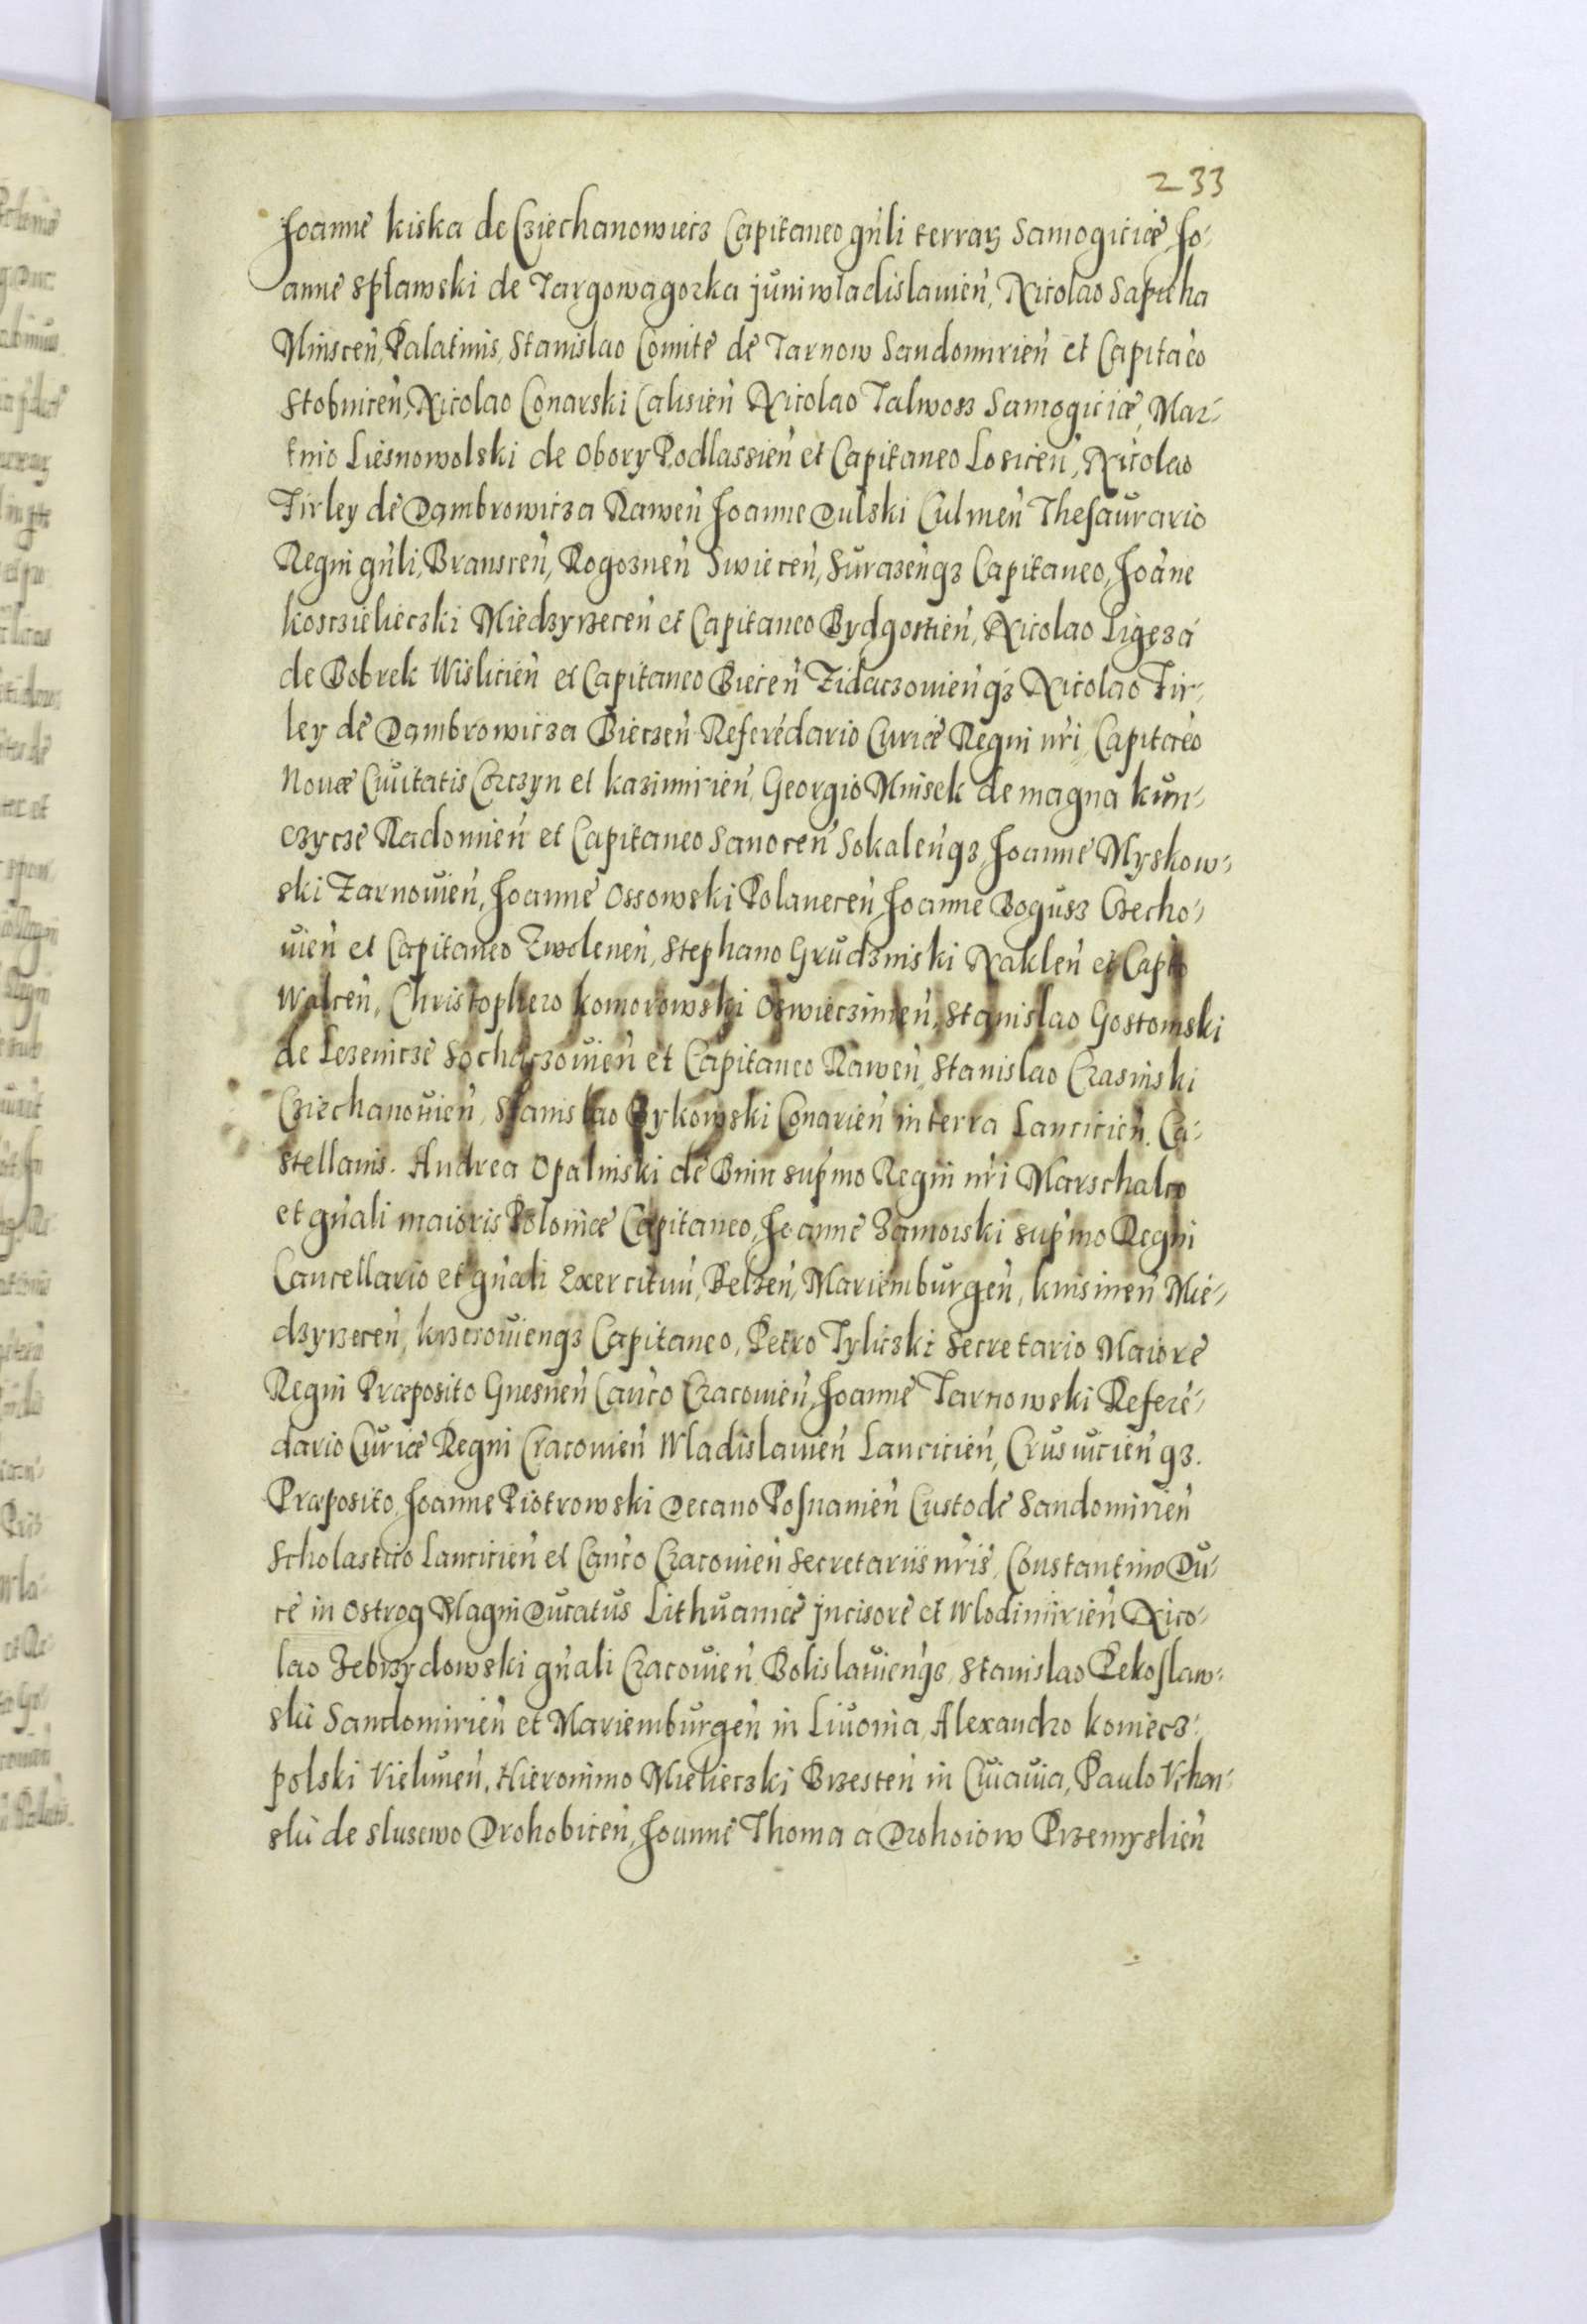 233
Joanne kiska de Cziechanowiecz Capitaneo gn̄li terrarꝫ Samogiciæ, Jo-
anne Splawski de Targowagorka juniwladislauien̄, Nicolao Sapieha
Minscen̄, Palatinis, Stanislao Comite de Tarnow Sandomirien̄ et Capitāeo
Stobnicen̄, Nicolao Conarski Calisien̄ Nicolao Talwosz Samogiciæ, Mar-
tino Liesnowolski de Obory Podlassien̄ et Capitaneo Losicen̄, Nicolao
Firley de Dambrowicza Rawen̄ Joanne Dulski Culmen̄ Thesaurario
Regni gn̄li, Branscen̄, Rogoznen̄ Swiecen̄, Surazen̄qꝫ Capitaneo, Joāne
kosczieleczki Miedzyrzecen̄ et Capitaneo Bydgostien̄, Nicolao Ligeza
de Bobrek Wislicien̄ et Capitaneo Biecen̄ Zidaczouien̄qꝫ Nicolao Fir-
ley de Dambrowicza Bieczen̄ Referēdario Curiæ Regni nr̄i, Capitāeo
Nouæ Ciuitatis Corczyn et kazimirien̄, Georgio Mnisek de magna kun-
czycze Radomien̄ et Capitaneo Sanocen̄ Sokalen̄qꝫ, Joanne Myskow-
ski Zarnouien̄, Joanne Ossowski Polanecen̄ Joanne Bogusz Czecho-
uien̄ et Capitaneo Zwolenen̄, Stephano Grudzinski Naklen̄ et Capit̄o
Walcen̄, Christophero komorowski Oswieczimen̄, Stanislao Gostomski
de Lezenicze Sochaczouien̄ et Capitaneo Rawen̄, Stanislao Crasinski
Cziechanouien̄, Stanislao Bykowski Conarien̄ in terra Lancicien̄. Ca-
stellanis. Andrea Opalinski de Bnin sup̄mo Regni nr̄i Marschalco
et gn̄ali maioris Poloniæ Capitaneo, Joanne Zamoiski sup̄mo Regni
Cancellario et gn̄ali Exercituū, Belzen̄, Mariemburgen̄, knisinen̄ Mie-
dzyrzecen̄, krzeszouienqꝫ Capitaneo, Petro Tyliczki Secretario Maiore
Regni Præposito Gnesnen̄ Can̄co Cracouien̄, Joanne Tarnowski Referē-
dario Curiæ Regni Cracouien̄ Wladislauien̄ Lancicien̄, Crusuicien̄qꝫ.
Præposito, Joanne Piotrowski Decano Posnanien̄ Custode Sandomirien̄
Scholastico Lancicien̄ et Can̄co Cracouien̄ Secretariis nr̄is, Constantino Du-
ce in Ostrog Magni Ducatus Lithuaniæ jncisore et Wlodimirien̄ Nico-
lao Zebrzydowski gn̄ali Cracouien̄ Bolislauien̄qꝫ, Stanislao Pekoslaw-
ski Sandomirien̄ et Mariemburgen̄ in Liuonia, Alexandro koniecz-
polski Vielunen̄, Hieronimo Mielieczki Brzesten̄ in Cuiauia, Paulo Vchan-
ski de Slusewo Drohobicen̄, Joanne Thoma a Drohoiow Przemyslien̄